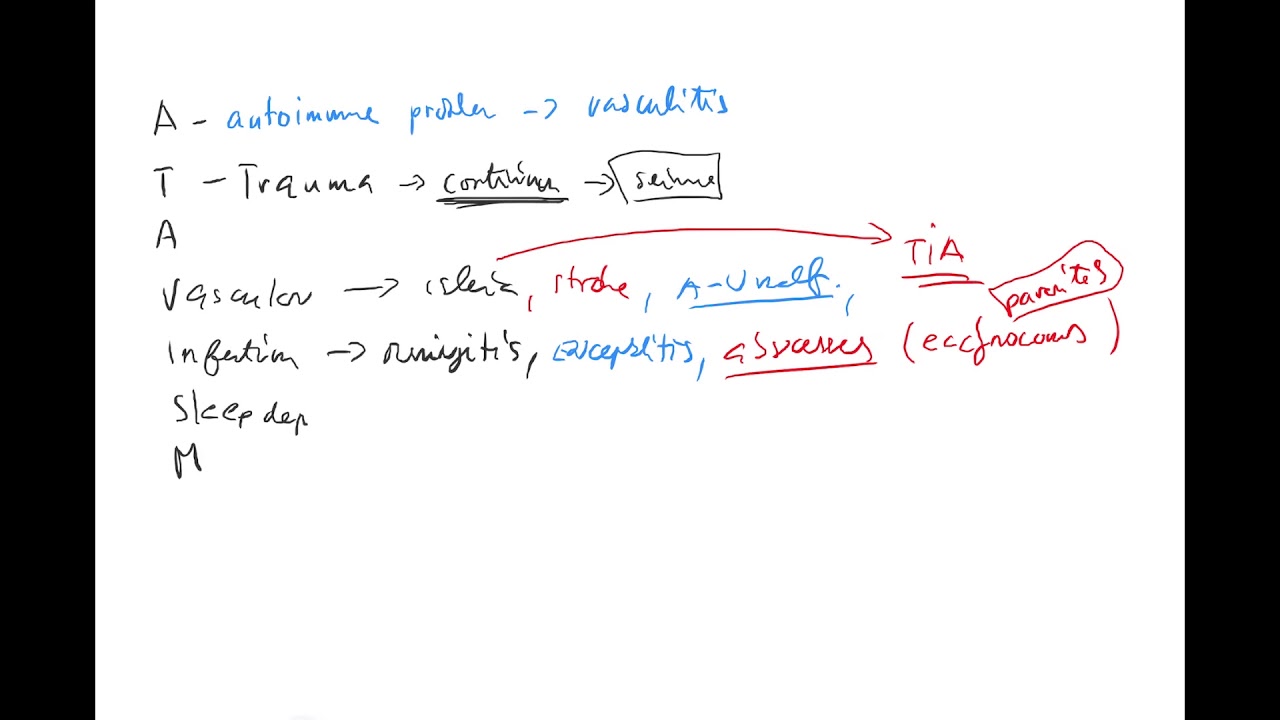 A - autoimmune problem -> vasculitis
T - Trauma -> contusion -> seizure
A
Vascular -> ischemia, stroke, A-V malf., TiA
parasites
Infection -> meningitis, encephalitis, abscesses ( )
Sleep dep
M